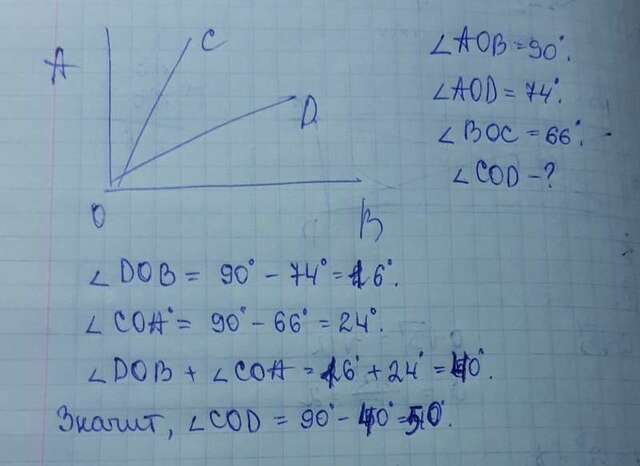 A
C
D
O
B
∠AOB = 90°.
∠AOD = 74°.
∠BOC = 66°.
∠COD - ?
∠DOB = 90° - 74° = 16°.
∠COA° = 90° - 66° = 24°.
∠DOB + ∠COA = 16° + 24° = 40°.
Значит, ∠COD = 90° - 40° = 50°.